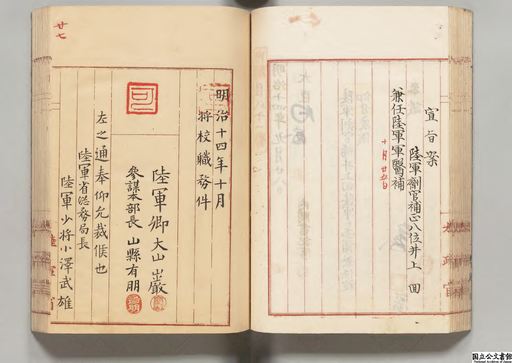 宣旨案
陸軍劑官補正八位井上
兼任陸軍軍醫補
十月廿五日
太政官
廿七
明治十四年十月
将校職務件
陸軍卿大山巌
參謀本部長山縣有朋
左之通奉仰允裁候也
陸軍省総務局長
陸軍少将小澤武雄
陸軍省
国立公文書館
National Archives of Japan